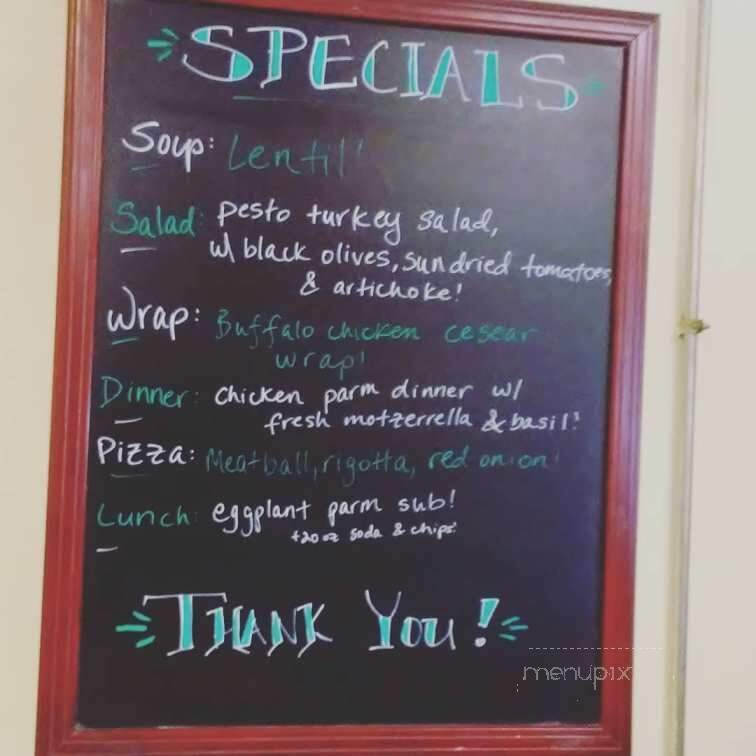 SPECIALS
Soup: Lentil!
Salad: pesto turkey salad,
w/ black olives, sundried tomatoes,
& artichoke!
Wrap: Buffalo chicken cesear
wrap!
Dinner: chicken parm dinner w/
fresh motzerrella & basil!
Pizza: Meatball, rigotta, red onion!
Lunch: eggplant parm sub!
+20 oz soda & chips!
THANK YOU!
menupix